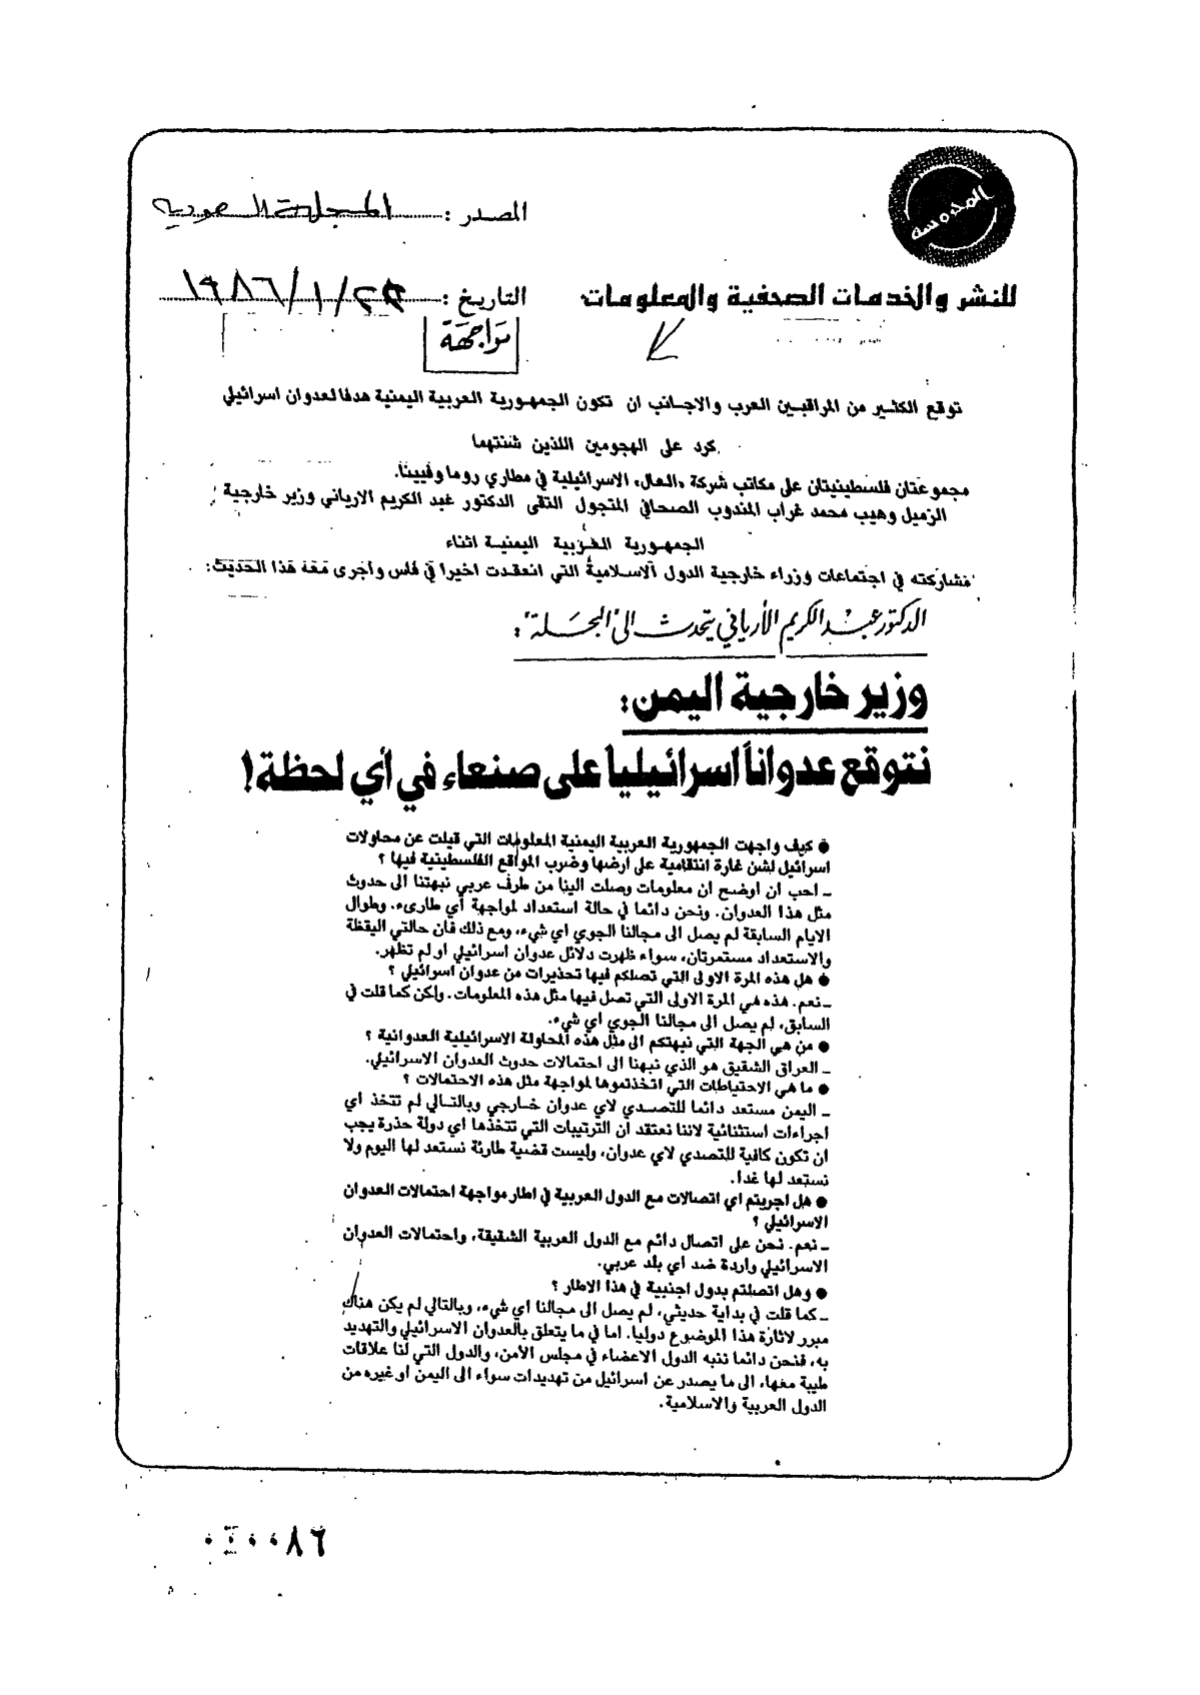 المصدر : المجلة السعودية
المحروسة
للنشر والخدمات الصحفية والمعلومات
التاريخ : ١٩٨٦/١/
مواجهة
توقع الكثير من المراقبين العرب والاجانب ان تكون الجمهورية العربية اليمنية هدفا لعدوان اسرائيلي
كرد على الهجومين اللذين شنتهما
مجموعتان فلسطينيتان على مكاتب شركة «العال» الاسرائيلية في مطاري روما وفيينا.
الزميل وهيب محمد غراب المندوب الصحافي المتجول التقى الدكتور عبد الكريم الارياني وزير خارجية
الجمهورية العربية اليمنية اثناء
مشاركته في اجتماعات وزراء خارجية الدول الاسلامية التي انعقدت اخيرا في فاس وأجرى معه هذا الحديث:
الدكتور عبد الكريم الأرياني يتحدث الى "المجلة":
وزير خارجية اليمن:
نتوقع عدواناً اسرائيلياً على صنعاء في أي لحظة!
● كيف واجهت الجمهورية العربية اليمنية المعلومات التي قيلت عن محاولات
اسرائيل لشن غارة انتقامية على ارضها وضرب المواقع الفلسطينية فيها ؟
ـ احب ان اوضح ان معلومات وصلت الينا من طرف عربي نبهتنا الى حدوث
مثل هذا العدوان. ونحن دائما في حالة استعداد لمواجهة أي طارىء. وطوال
الايام السابقة لم يصل الى مجالنا الجوي اي شيء، ومع ذلك فان حالتي اليقظة
والاستعداد مستمرتان، سواء ظهرت دلائل عدوان اسرائيلي او لم تظهر.
● هل هذه المرة الاولى التي تصلكم فيها تحذيرات من عدوان اسرائيلي ؟
ـ نعم. هذه هي المرة الاولى التي تصل فيها مثل هذه المعلومات. ولكن كما قلت في
السابق، لم يصل الى مجالنا الجوي اي شيء.
● من هي الجهة التي نبهتكم الى مثل هذه المحاولة الاسرائيلية العدوانية ؟
ـ العراق الشقيق هو الذي نبهنا الى احتمالات حدوث العدوان الاسرائيلي.
● ما هي الاحتياطات التي اتخذتموها لمواجهة مثل هذه الاحتمالات ؟
ـ اليمن مستعد دائما للتصدي لاي عدوان خارجي وبالتالي لم تتخذ اي
اجراءات استثنائية لاننا نعتقد ان الترتيبات التي تتخذها اي دولة حذرة يجب
ان تكون كافية للتصدي لاي عدوان، وليست قضية طارئة نستعد لها اليوم ولا
نستعد لها غدا.
● هل اجريتم اي اتصالات مع الدول العربية في اطار مواجهة احتمالات العدوان
الاسرائيلي ؟
ـ نعم. نحن على اتصال دائم مع الدول العربية الشقيقة، واحتمالات العدوان
الاسرائيلي واردة ضد اي بلد عربي.
● وهل اتصلتم بدول اجنبية في هذا الاطار ؟
ـ كما قلت في بداية حديثي، لم يصل الى مجالنا اي شيء، وبالتالي لم يكن هناك
مبرر لاثارة هذا الموضوع دوليا. اما في ما يتعلق بالعدوان الاسرائيلي والتهديد
به، فنحن دائما ننبه الدول الاعضاء في مجلس الأمن، والدول التي لنا علاقات
طيبة معها، الى ما يصدر عن اسرائيل من تهديدات سواء الى اليمن او غيره من
الدول العربية والاسلامية.